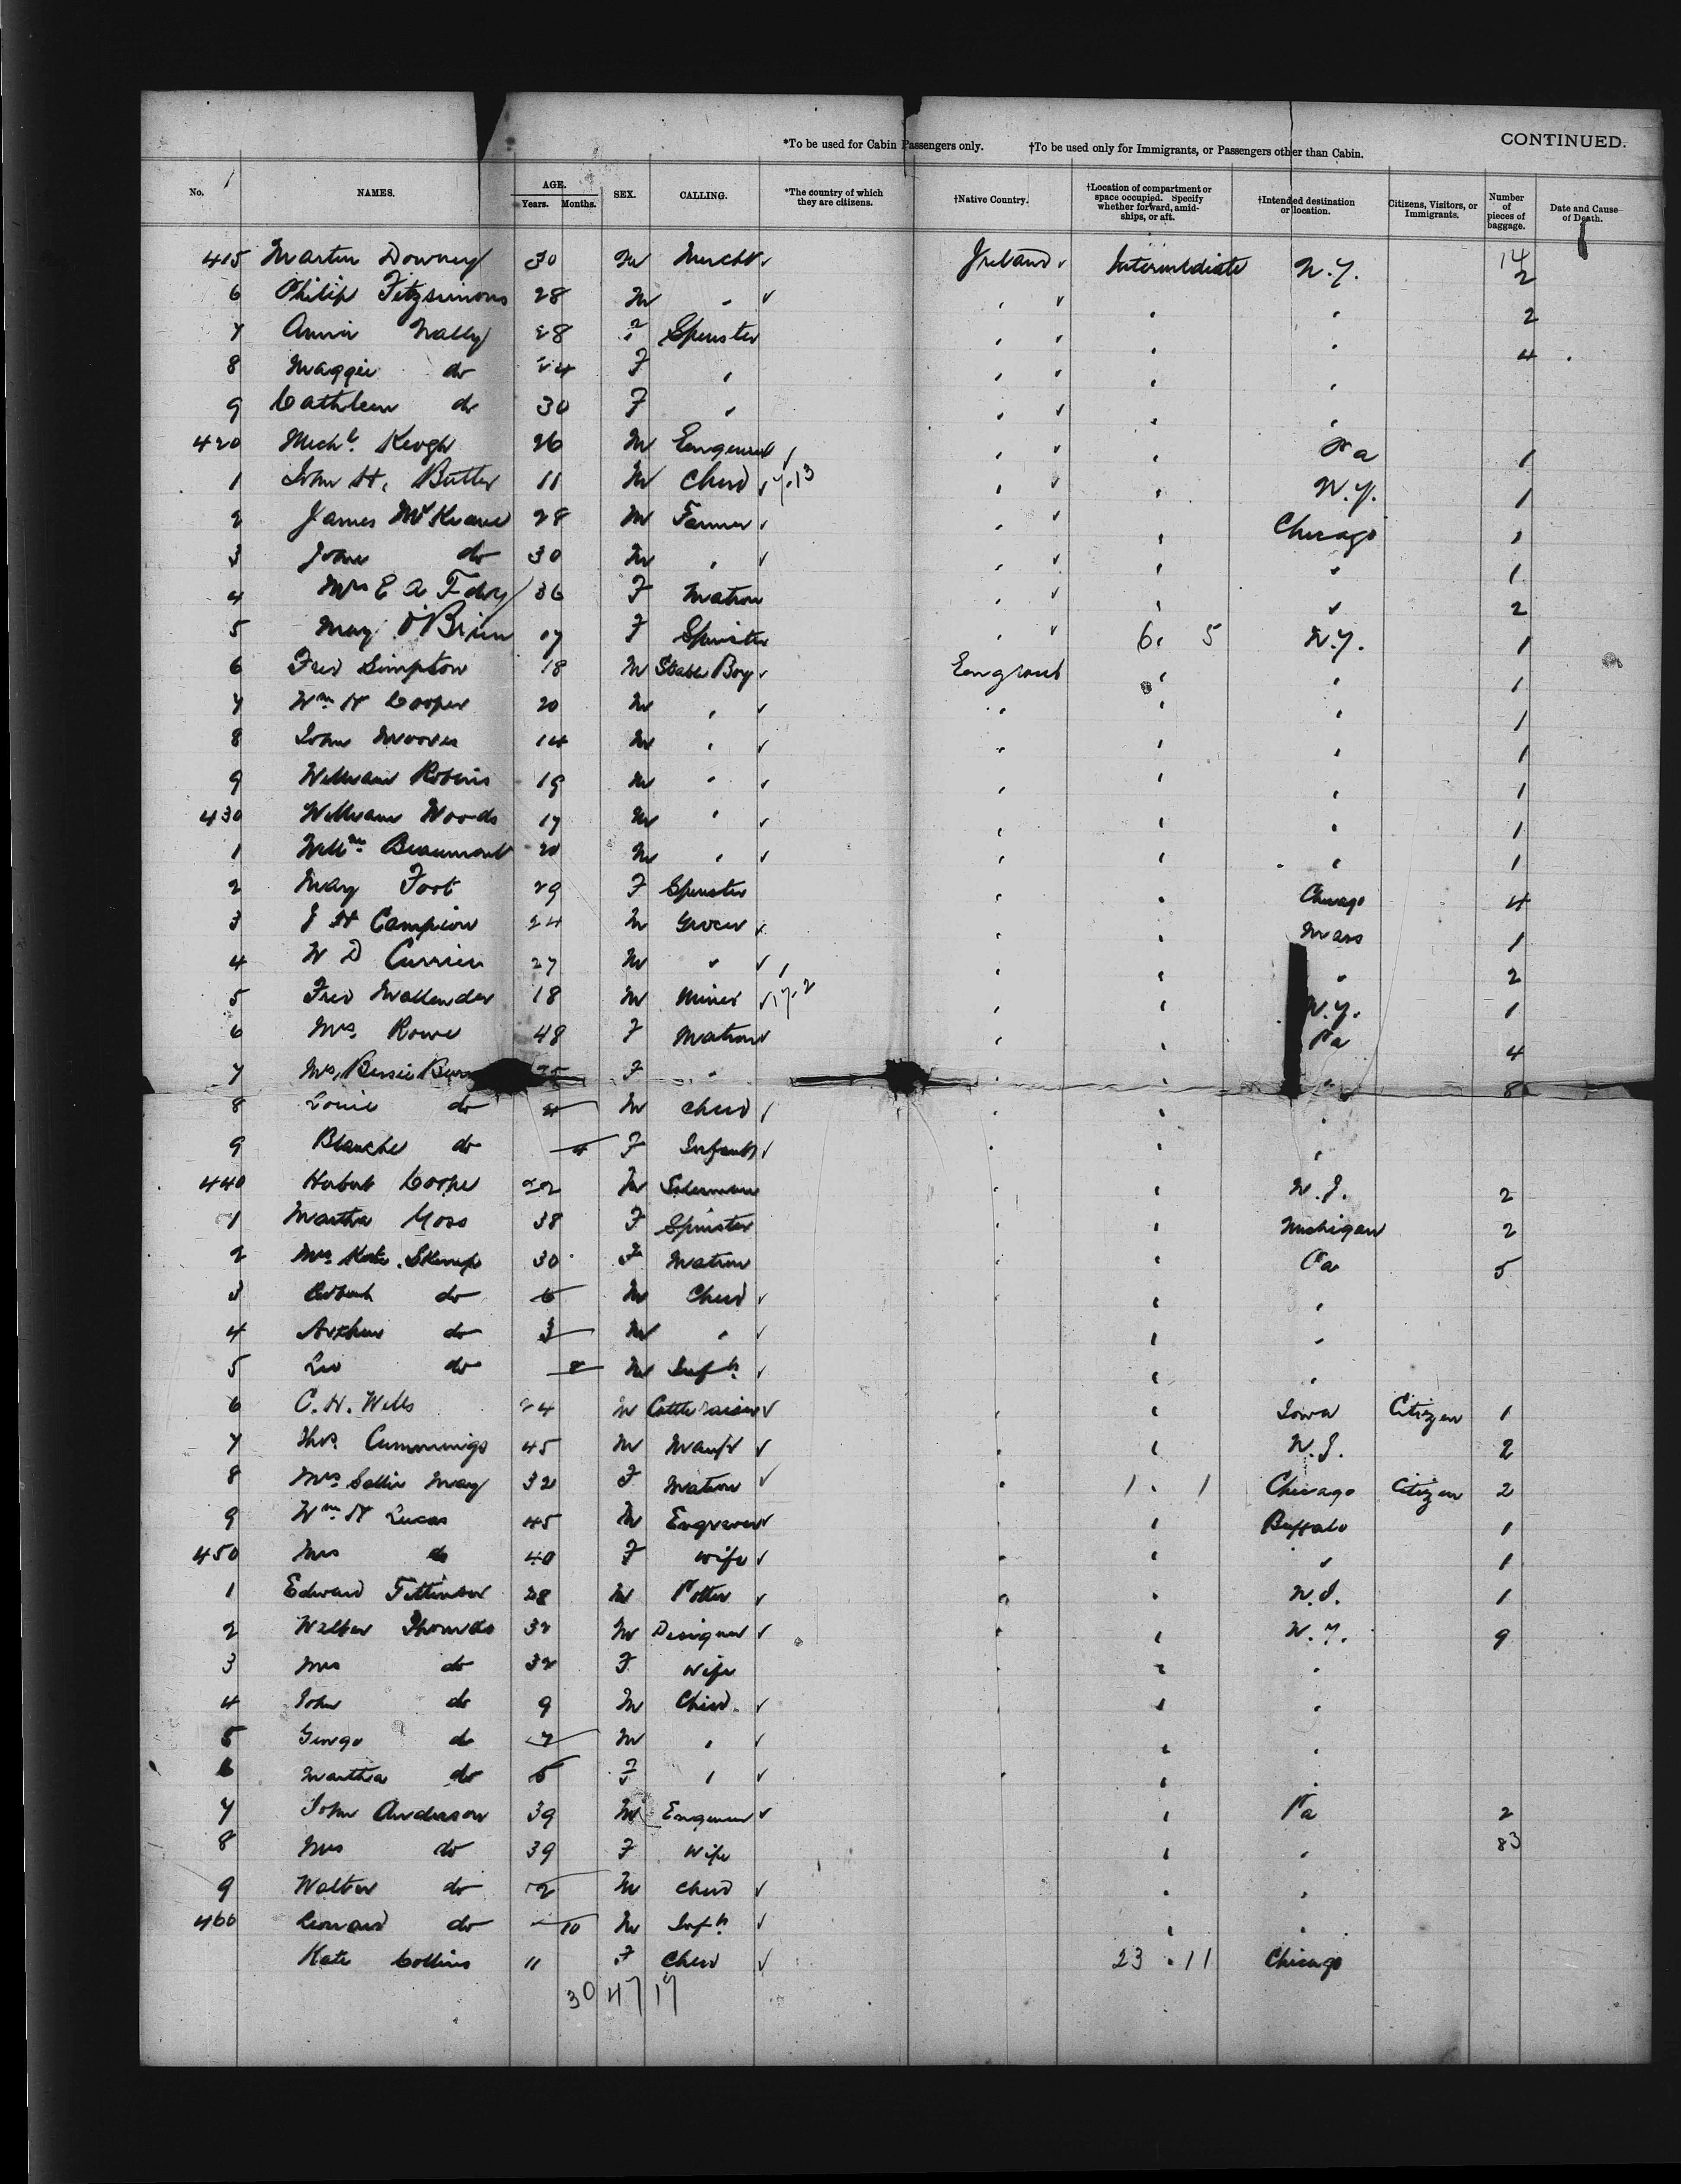 CONTINUED.
*To be used for Cabin Passengers only. †To be used only for Immigrants, or Passengers other than Cabin.
No. NAMES. AGE. Years. Months. SEX. CALLING. *The country of which they are citizens. †Native Country. †Location of compartment or space occupied. Specify whether forward, amidships, or aft. †Intended destination or location. Citizens, Visitors, or Immigrants. Number of pieces of baggage. Date and Cause of Death.
415 Martin Downey 30 M Mercht Ireland Intermediate N.Y. 14 2
6 Philip Fitzsimons 28 M " " " " 2
7 Annie Nally 28 F Spinster " " " 4
8 Maggie do 24 F " " " "
9 Cathleen do 30 F " " " "
420 Michl. Keogh 26 M Engineer " " Pa 1
1 John H. Butler 11 M Child " " N.Y. 1
2 James McKeane 28 M Farmer " " Chicago 1
3 John do 30 M " " " " 1
4 Mrs E A 36 F Matron " " " 2
5 May O'Brien 17 F Spinster " 6 . 5 N.Y. 1
6 Fred Simpton 18 M Stable Boy England " " 1
7 Wm H Cooper 20 M " " " " 1
8 John Moores 14 M " " " " 1
9 William Robins 19 M " " " " 1
430 William Woods 17 M " " " " 1
1 Willm Beaumont 20 M " " " " 1
2 May Foot 29 F Spinster " " Chicago 4
3 J H Campion 24 M Grocer " " Mass 1
4 W D Currier 27 M " " " " 2
5 Fred Mallender 18 M Miner " " N.Y. 1
6 Mrs. Rowe 48 F Matron " " Pa 4
7 Mrs. Bessie F " " " " 8
8 Louie do 4 M Child " " "
9 Blanche do 4 F Infant " " "
440 Herbert Cooper 22 M " " N.J. 2
1 Martha Moss 38 F Spinster " " Michigan 2
2 Mrs. Kate Skemp 30 F Matron " " Pa 5
3 Albert do 6 M Child " " "
4 Arthur do 3 M " " " "
5 Leo do 8 M Inft. " " "
6 C. H. Wells 24 M Cattle raiser " " Iowa Citizen 1
7 Thos. Cummings 45 M Manfr " " N.J. 2
8 Mrs Sallie May 32 F Matron " 1 . 1 Chicago Citizen 2
9 Wm H Lucas 45 M Engraver " " Buffalo 1
450 Mrs do 40 F Wife " " " 1
1 Edward 28 M Potter " " N.J. 1
2 Walter Thomas 32 M Designer " " N.Y. 9
3 Mrs do 32 F Wife " " "
4 John do 9 M Child " " "
5 George do 7 M " " " "
6 Martha do 5 F " " " "
7 John Anderson 39 M Engineer " Pa 2
8 Mrs do 39 F Wife " " 83
9 Walter do 2 M Child " "
460 Leonard do 10 M Inft. " "
Kate Collins 11 F Child 23 . 11 Chicago
30 47 17